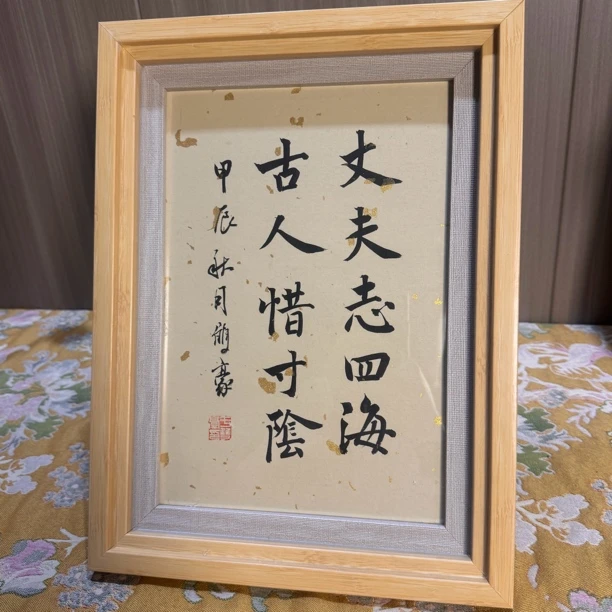 丈夫志四海
古人惜寸陰
甲辰秋月